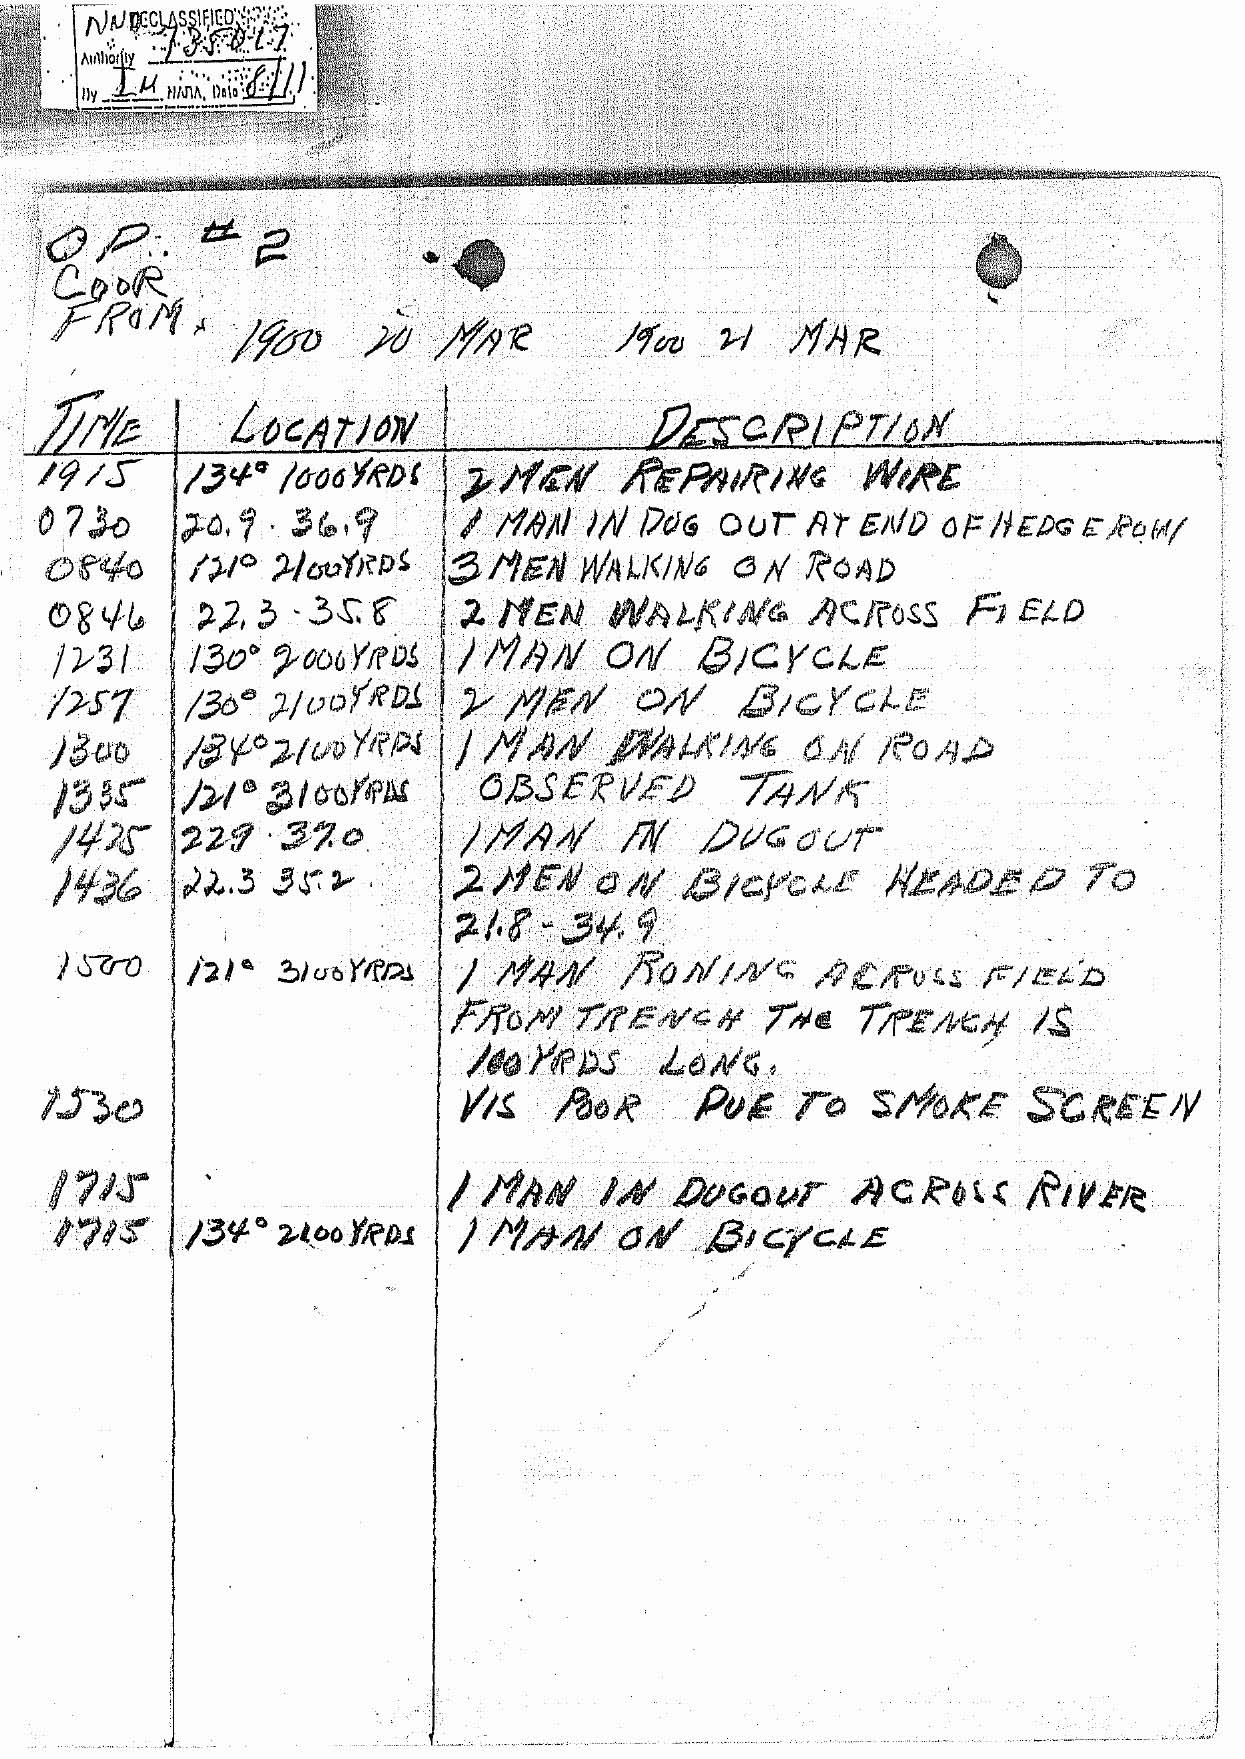 NND DECLASSIFIED
Authority 735017
By IM NARA, Date 8/11
O P. # 2
COOR
FROM.
1900 20 MAR 1900 21 MAR
TIME LOCATION DESCRIPTION
1915 134° 1000 YRDS 2 MEN REPAIRING WIRE
0730 20.9 . 36.9 1 MAN IN DUG OUT AT END OF HEDGE ROW
0840 121° 2100 YRDS 3 MEN WALKING ON ROAD
0846 22.3 - 35.8 2 MEN WALKING ACROSS FIELD
1231 130° 2000 YRDS 1 MAN ON BICYCLE
1257 130° 2100 YRDS 2 MEN ON BICYCLE
1300 134° 2100 YRDS 1 MAN WALKING ON ROAD
1335 121° 3100 YRDS OBSERVED TANK
1425 229 . 37.0 1 MAN IN DUGOUT
1436 22.3 35.2 2 MEN ON BICYCLE HEADED TO
21.8 - 34.9
1500 121° 3100 YRDS 1 MAN RONING ACROSS FIELD
FROM TRENCH THE TRENCH IS
100 YRDS LONG.
1530 VIS POOR DUE TO SMOKE SCREEN
1715 1 MAN IN DUGOUT ACROSS RIVER
1715 134° 2100 YRDS 1 MAN ON BICYCLE